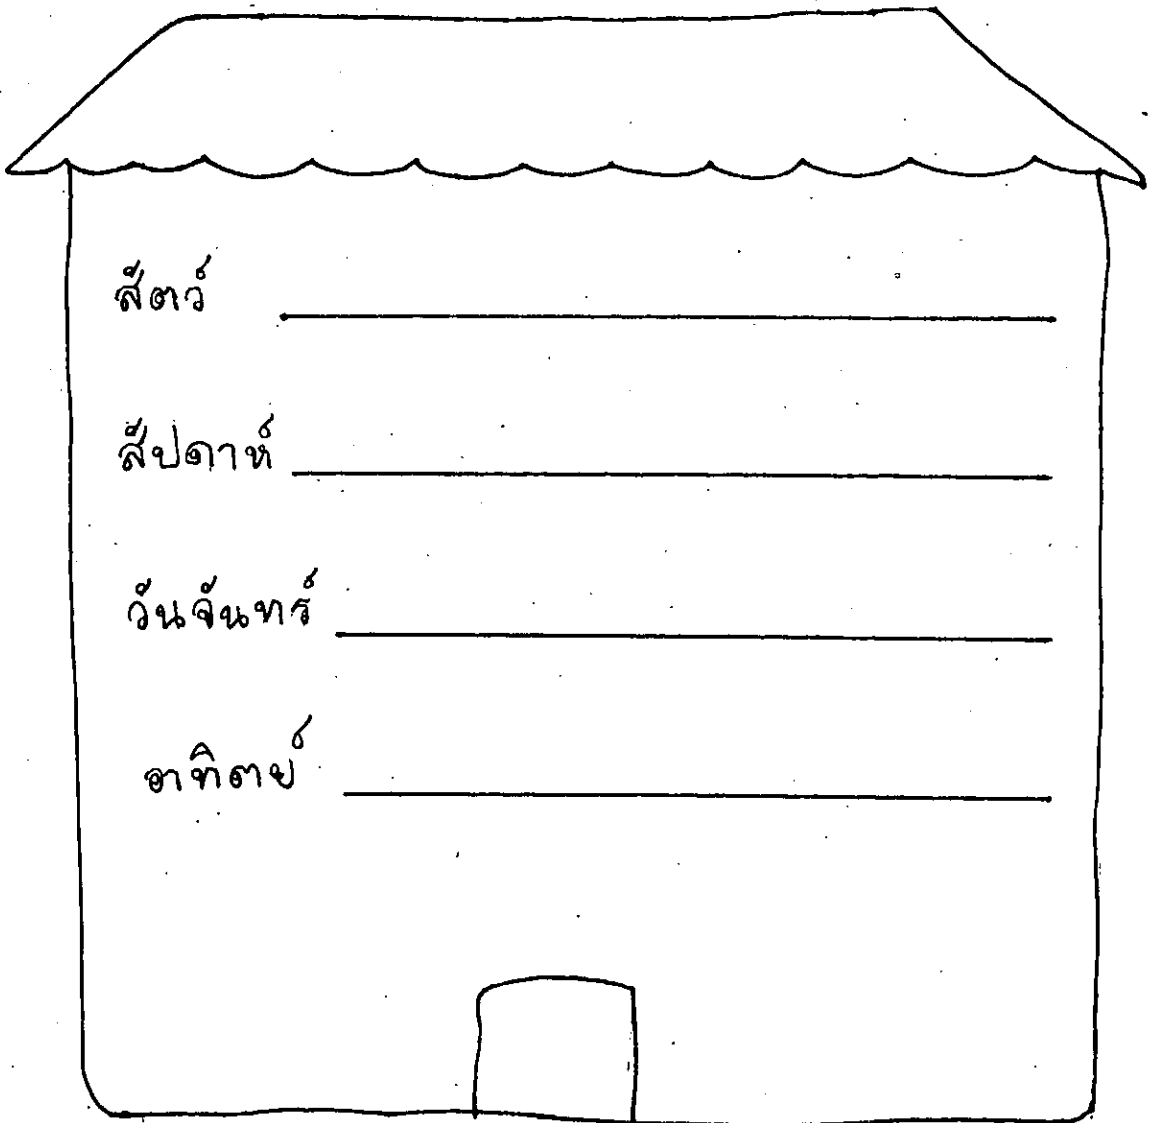 สัตว์
สัปดาห์
วันจันทร์
อาทิตย์